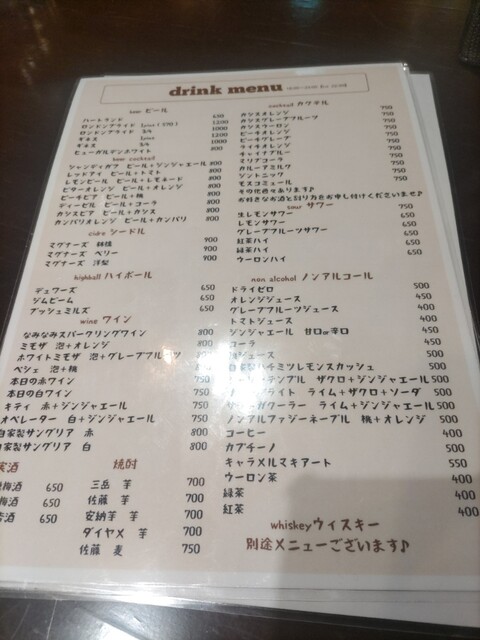 drink menu
beer ビール
ハートランド 630
ロンドンプライド 1pint(570) 1200
ロンドンプライド 3/4 1000
ギネス 1pint 1200
ギネス 3/4 1000
ヒューガルデンホワイト 800
beer cocktail
シャンディガフ ビール+ジンジャエール 800
レッドアイ ビール+トマト 800
レモンビール ビール+レモネード 800
ビターオレンジ ビール+オレンジ 800
ピーチビア ビール+桃 800
ディーゼル ビール+コーラ 800
カシスビア ビール+カシス 800
カンパリオレンジ ビール+カンパリ 800
cidre シードル
マグナーズ 林檎 900
マグナーズ ベリー 900
マグナーズ 洋梨 900
highball ハイボール
デュワーズ 650
ジムビーム 650
ブッシュミルズ 650
wine ワイン
なみなみスパークリングワイン 800
ミモザ 泡+オレンジ 800
ホワイトミモザ 泡+グレープフルーツ 800
ペシェ 泡+桃 800
本日の赤ワイン 750
本日の白ワイン 750
キティ 赤+ジンジャエール 750
オペレーター 白+ジンジャエール 750
自家製サングリア 赤 800
自家製サングリア 白 800
実酒
梅酒 650
梅酒 650
酒 650
焼酎
三岳 芋 700
佐藤 芋 750
安納芋 芋 700
ダイヤメ 芋 700
佐藤 麦 750
cocktail カクテル
カシスオレンジ 750
カシスグレープフルーツ 750
カシスウーロン 750
ピーチオレンジ 750
ピーチグレープ 750
ライチオレンジ 750
チャイナブルー 750
マリブコーラ 750
カルーアミルク 750
ジントニック 750
モスコミュール 750
その他色々あります♪
お好きなお酒と割り方をお申し付けくださいませ♪
sour サワー
生レモンサワー 750
レモンサワー 650
グレープフルーツサワー 650
紅茶ハイ 650
緑茶ハイ 650
ウーロンハイ 650
non alcohol ノンアルコール
ドライゼロ 500
オレンジジュース 450
グレープフルーツジュース 400
トマトジュース 400
ジンジャエール 甘口or辛口 450
コーラ 450
ジュース 500
自家製ハチミツレモンスカッシュ 500
テンプル ザクロ+ジンジャエール 500
ライト ライム+ザクロ+ソーダ 500
クーラー ライム+ジンジャエール 500
ノンアルファジーネーブル 桃+オレンジ 500
コーヒー 400
カプチーノ 500
キャラメルマキアート 550
ウーロン茶 400
緑茶 400
紅茶 400
whiskeyウィスキー
別途メニューございます♪